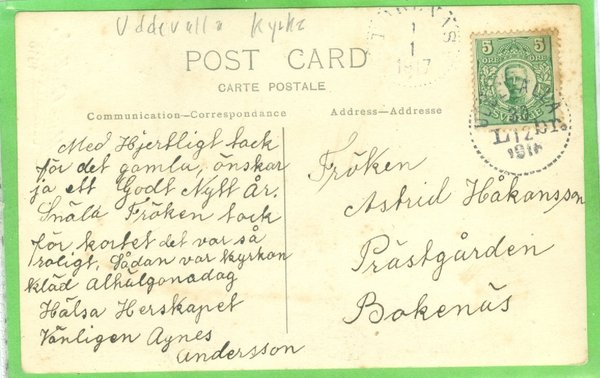 Uddevalla Kyrka
POST CARD
CARTE POSTALE
Communication—Correspondence
Address—Address
1
1
1917
5 5
ÖRE ÖRE
SVERIGE
LJDL
12
1916
Med Hjertligt tack
för det gamla, önskar
ja ett Godt Nytt År.
Snäla Fröken tack
för kortet det var så
roligt, Sådan var kyrkan
kläd Alhälgonadag
Hälsa Herskapet
Vänligen Agnes
Andersson
Fröken
Astrid Håkansson
Prästgården
Bokenäs